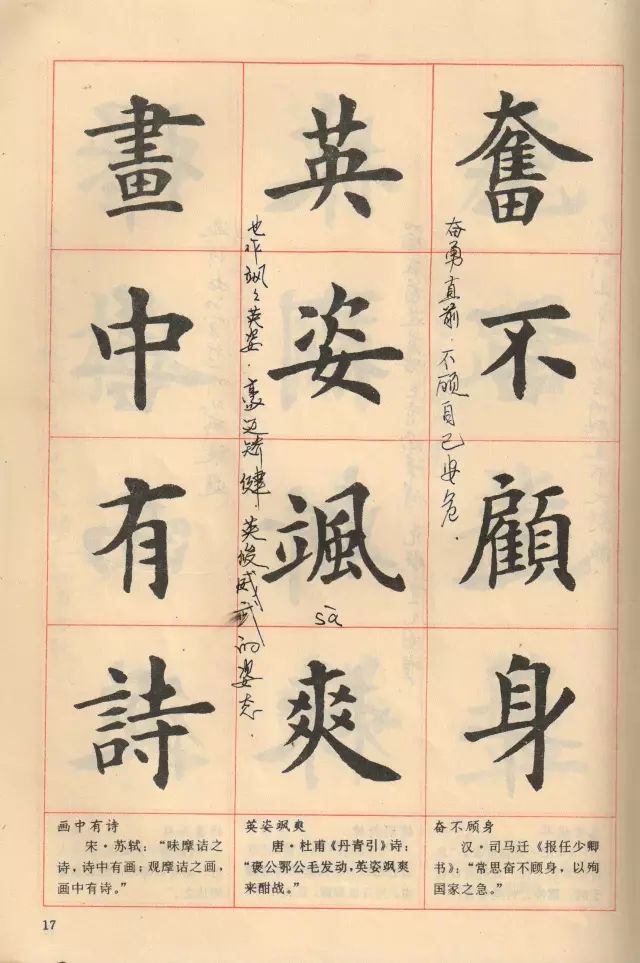 奮不顧身
奋勇直前．不顾自己安危．
英姿颯爽
sà
也作飒飒英姿．豪迈矫健 英俊威武的姿态．
畫中有詩
画中有诗
宋·苏轼：“味摩诘之
诗，诗中有画；观摩诘之画，
画中有诗。”
英姿飒爽
唐·杜甫《丹青引》诗：
“褒公鄂公毛发动，英姿飒爽
来酣战。”
奋不顾身
汉·司马迁《报任少卿
书》：“常思奋不顾身，以殉
国家之急。”
17